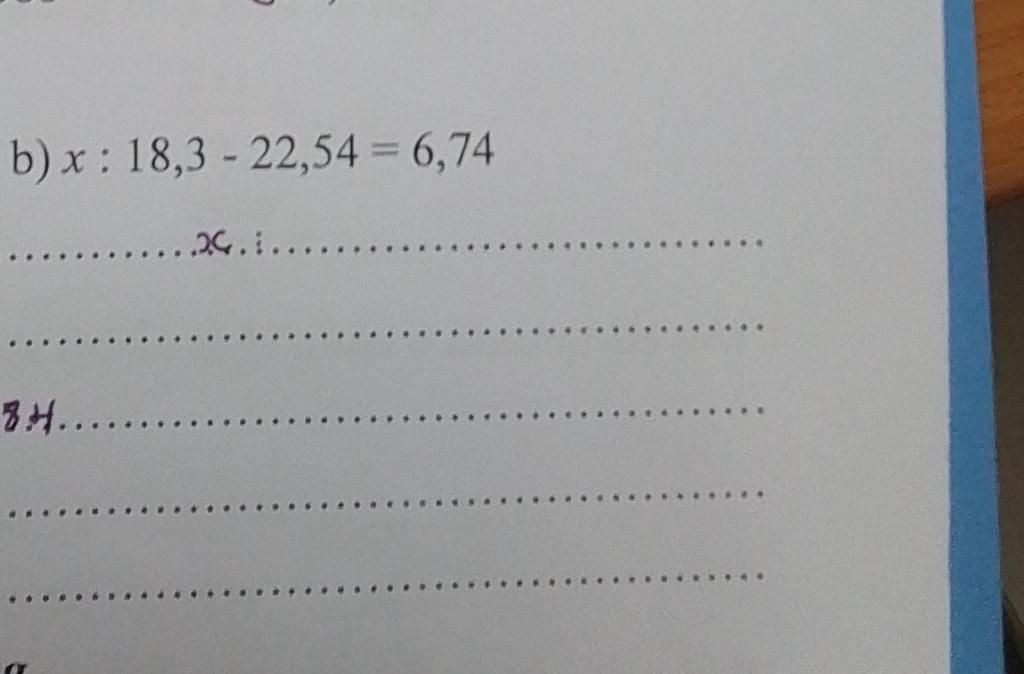 b) x : 18,3 - 22,54 = 6,74
x :
84